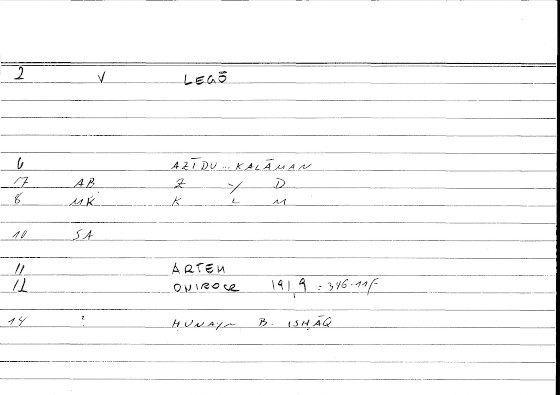 2 V LEGŌ
6 AZĪDU... KALĀMAN
17 AB Z Y D
8 MK K L M
10 SA
11 ARTEM
12 ONIROCR 191,9 = 346.11f
14 ? HUNAYN B. ISHĀQ